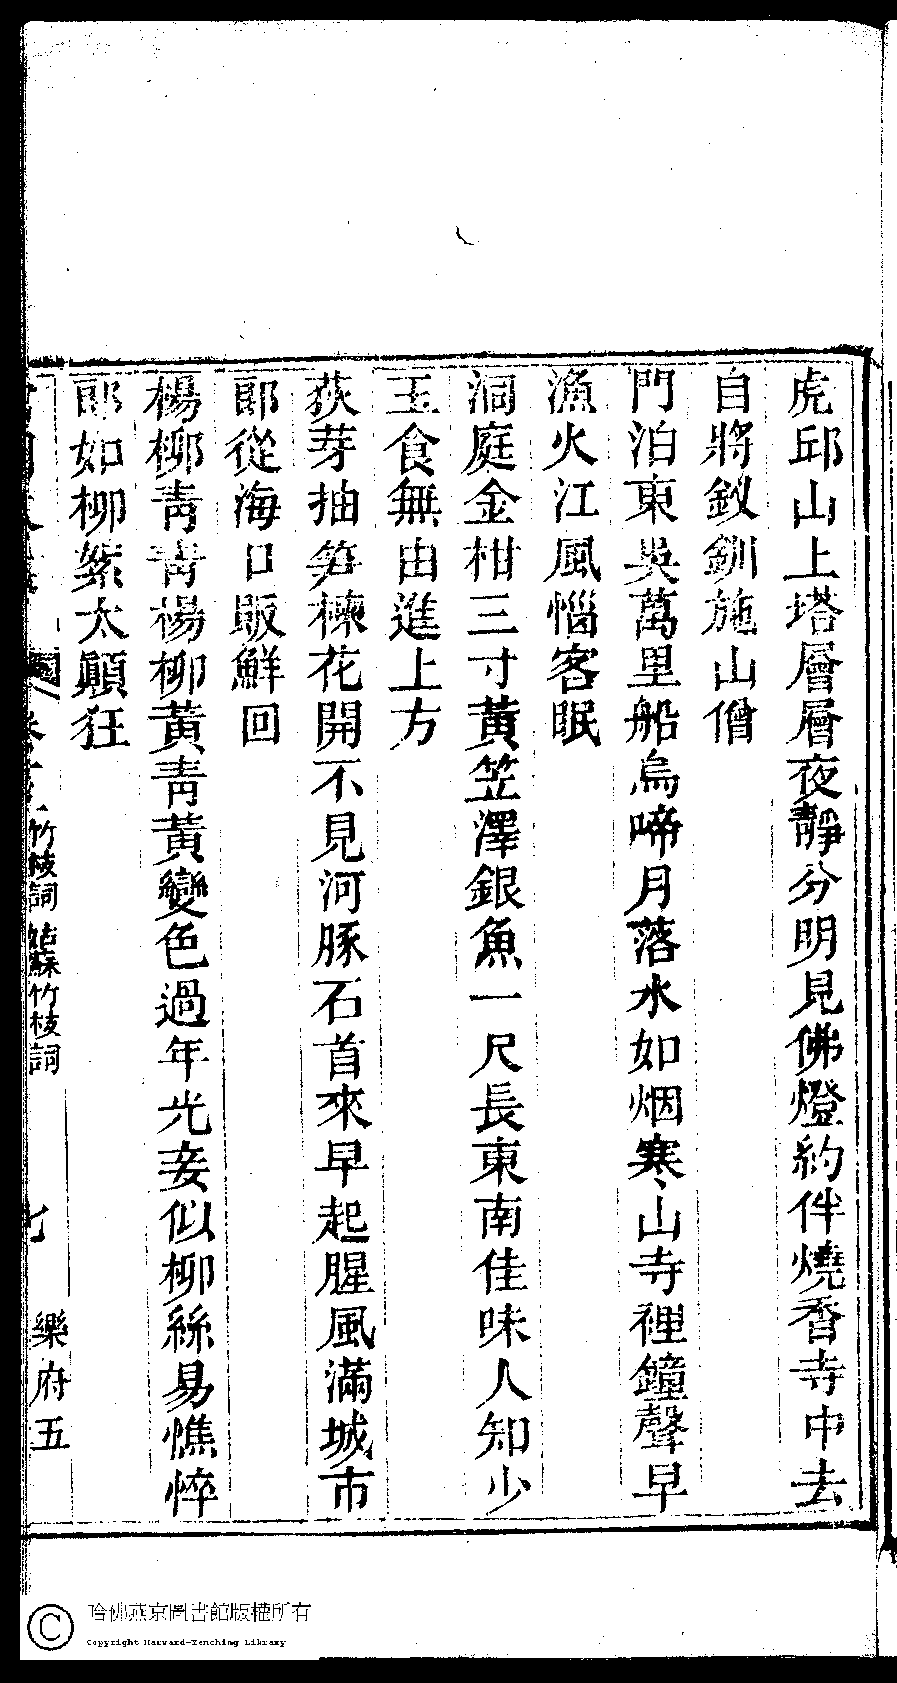 虎邱山上塔層層夜靜分明見佛燈約伴燒香寺中去
自將釵釧施山僧
門泊東吳萬里船烏啼月落水如烟寒山寺裡鐘聲早
漁火江風惱客眠
洞庭金柑三寸黃笠澤銀魚一尺長東南佳味人知少
玉食無由進上方
荻芽抽笋楝花開不見河豚石首來早起腥風滿城市
郎從海口販鮮回
楊柳青青楊柳黃青黃變色過年光妾似柳絲易憔悴
郎如柳絮太顛狂
竹枝詞 姑蘇竹枝詞 七 樂府五
哈佛燕京圖書館版權所有
Copyright Harvard-Yenching Library